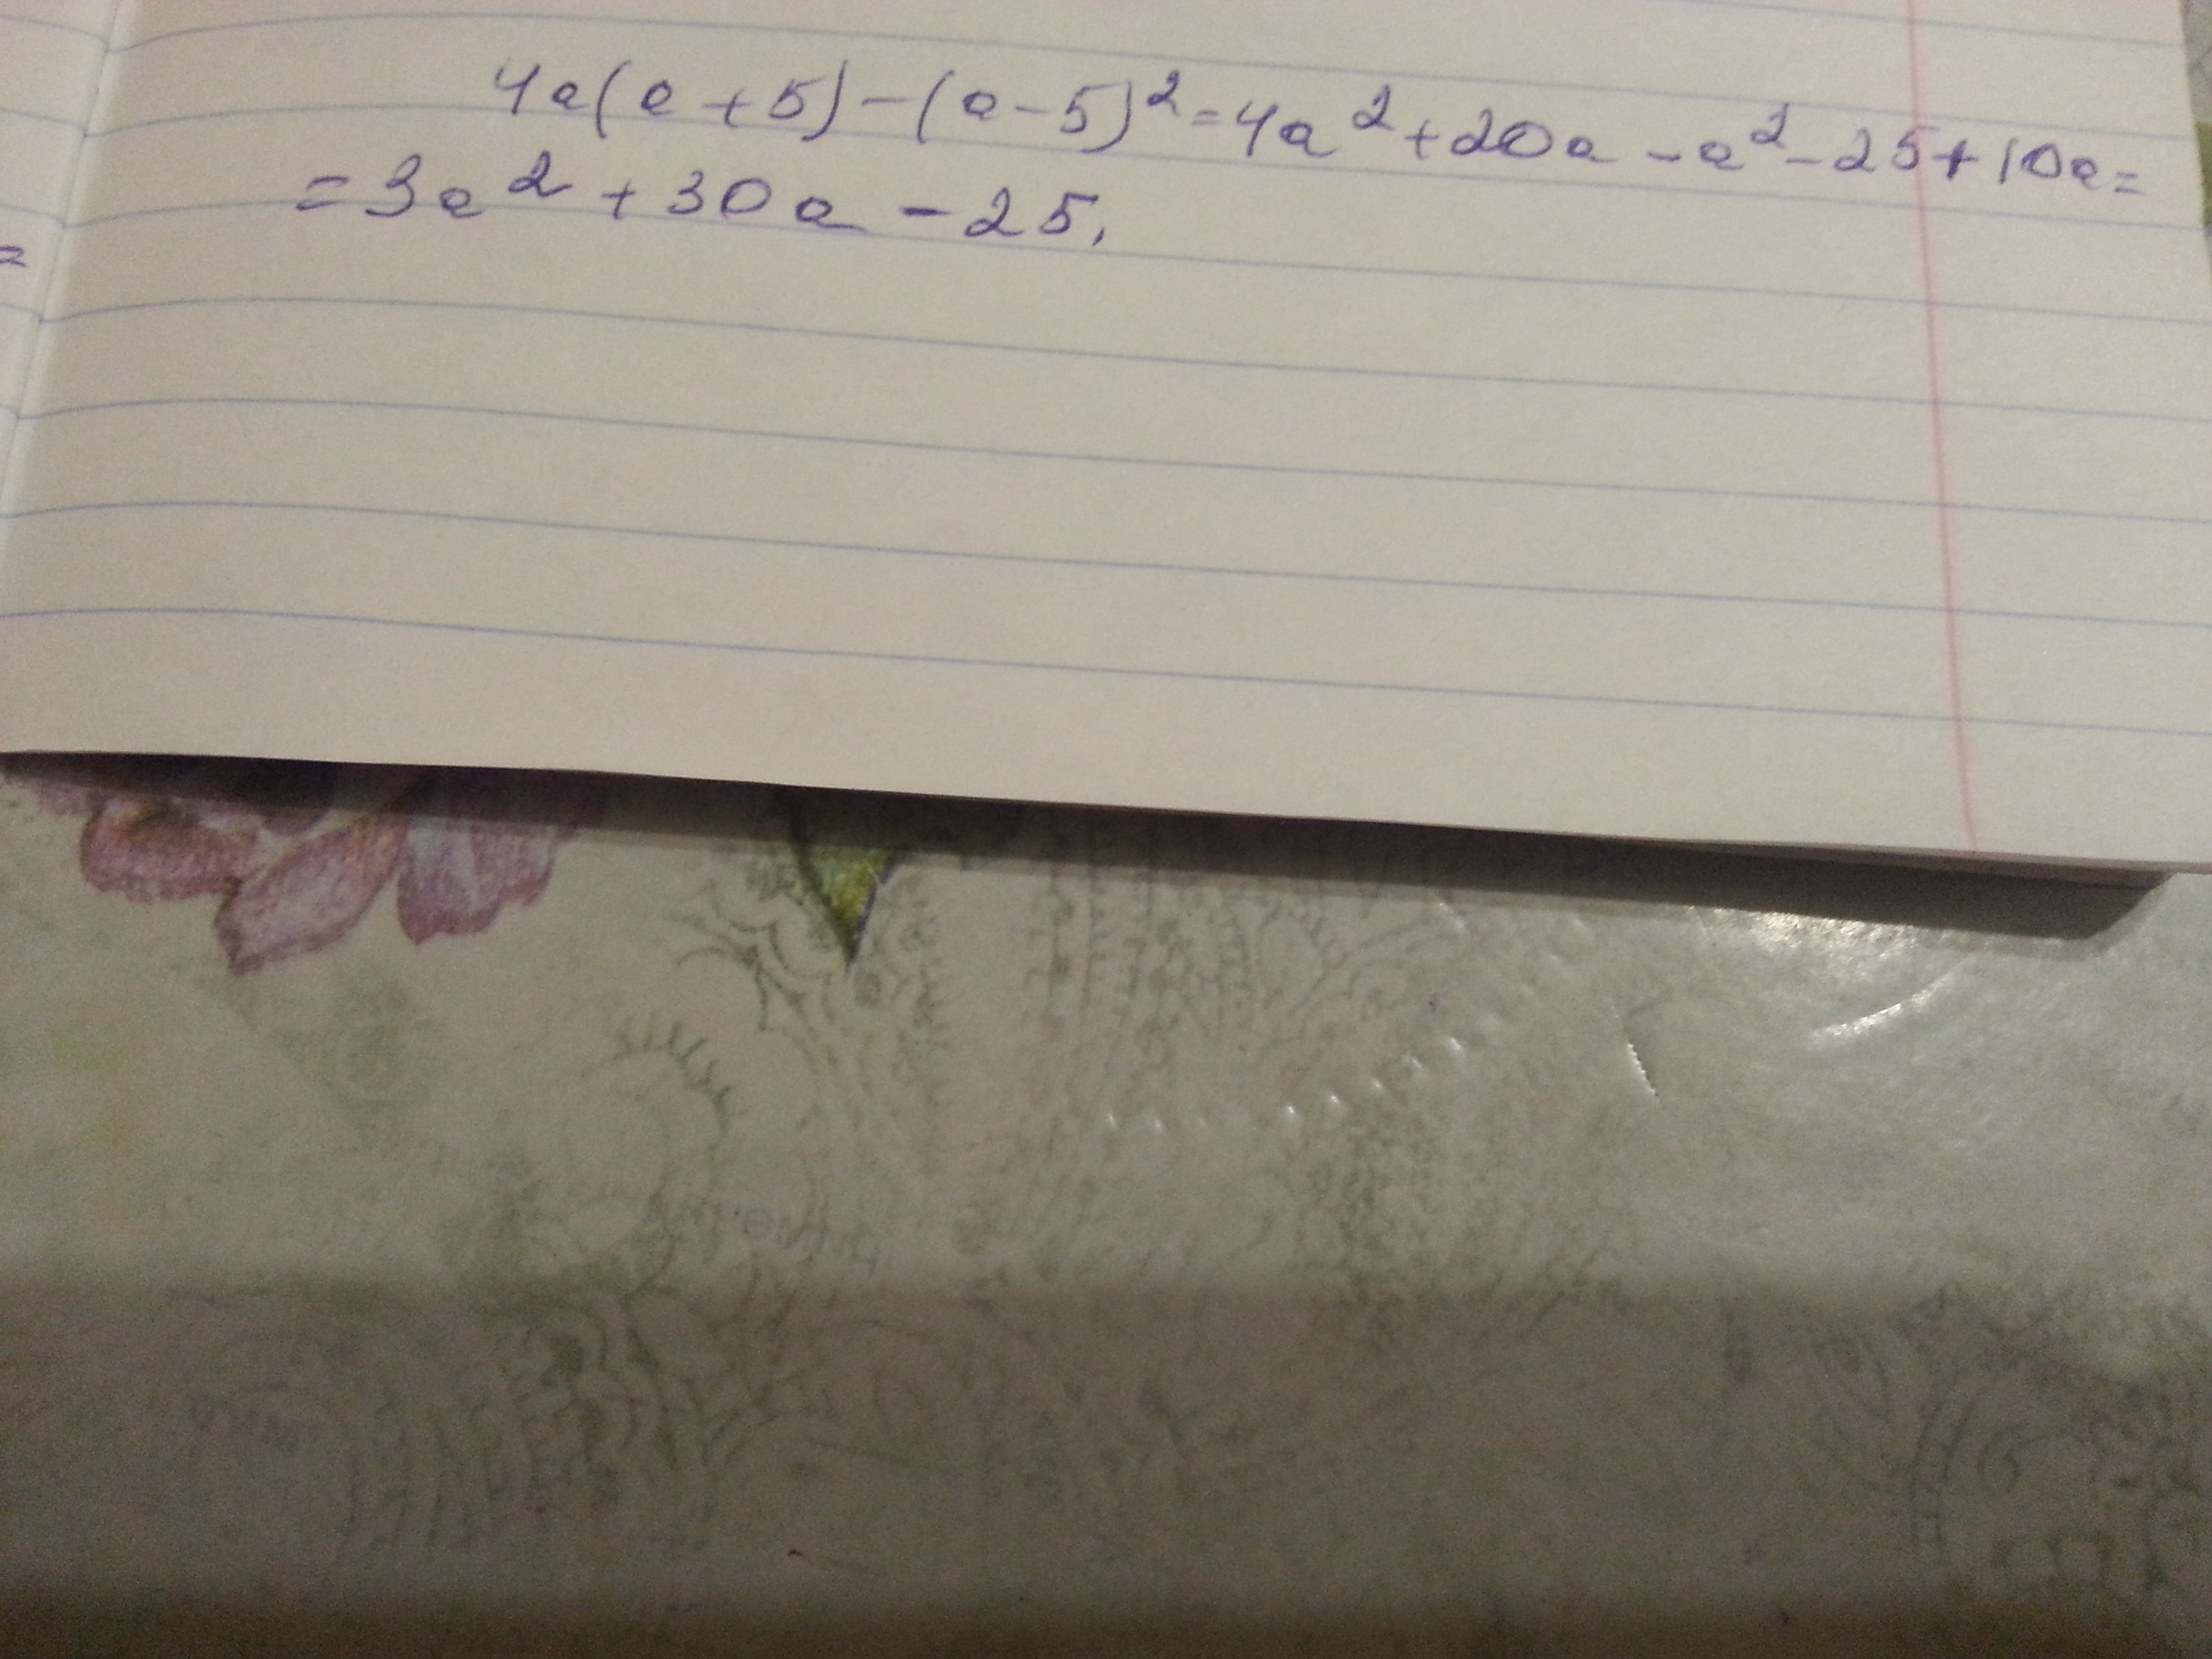 4a(a+5)-(a-5)²=4a²+20a-a²-25+10a=
=3a²+30a-25.